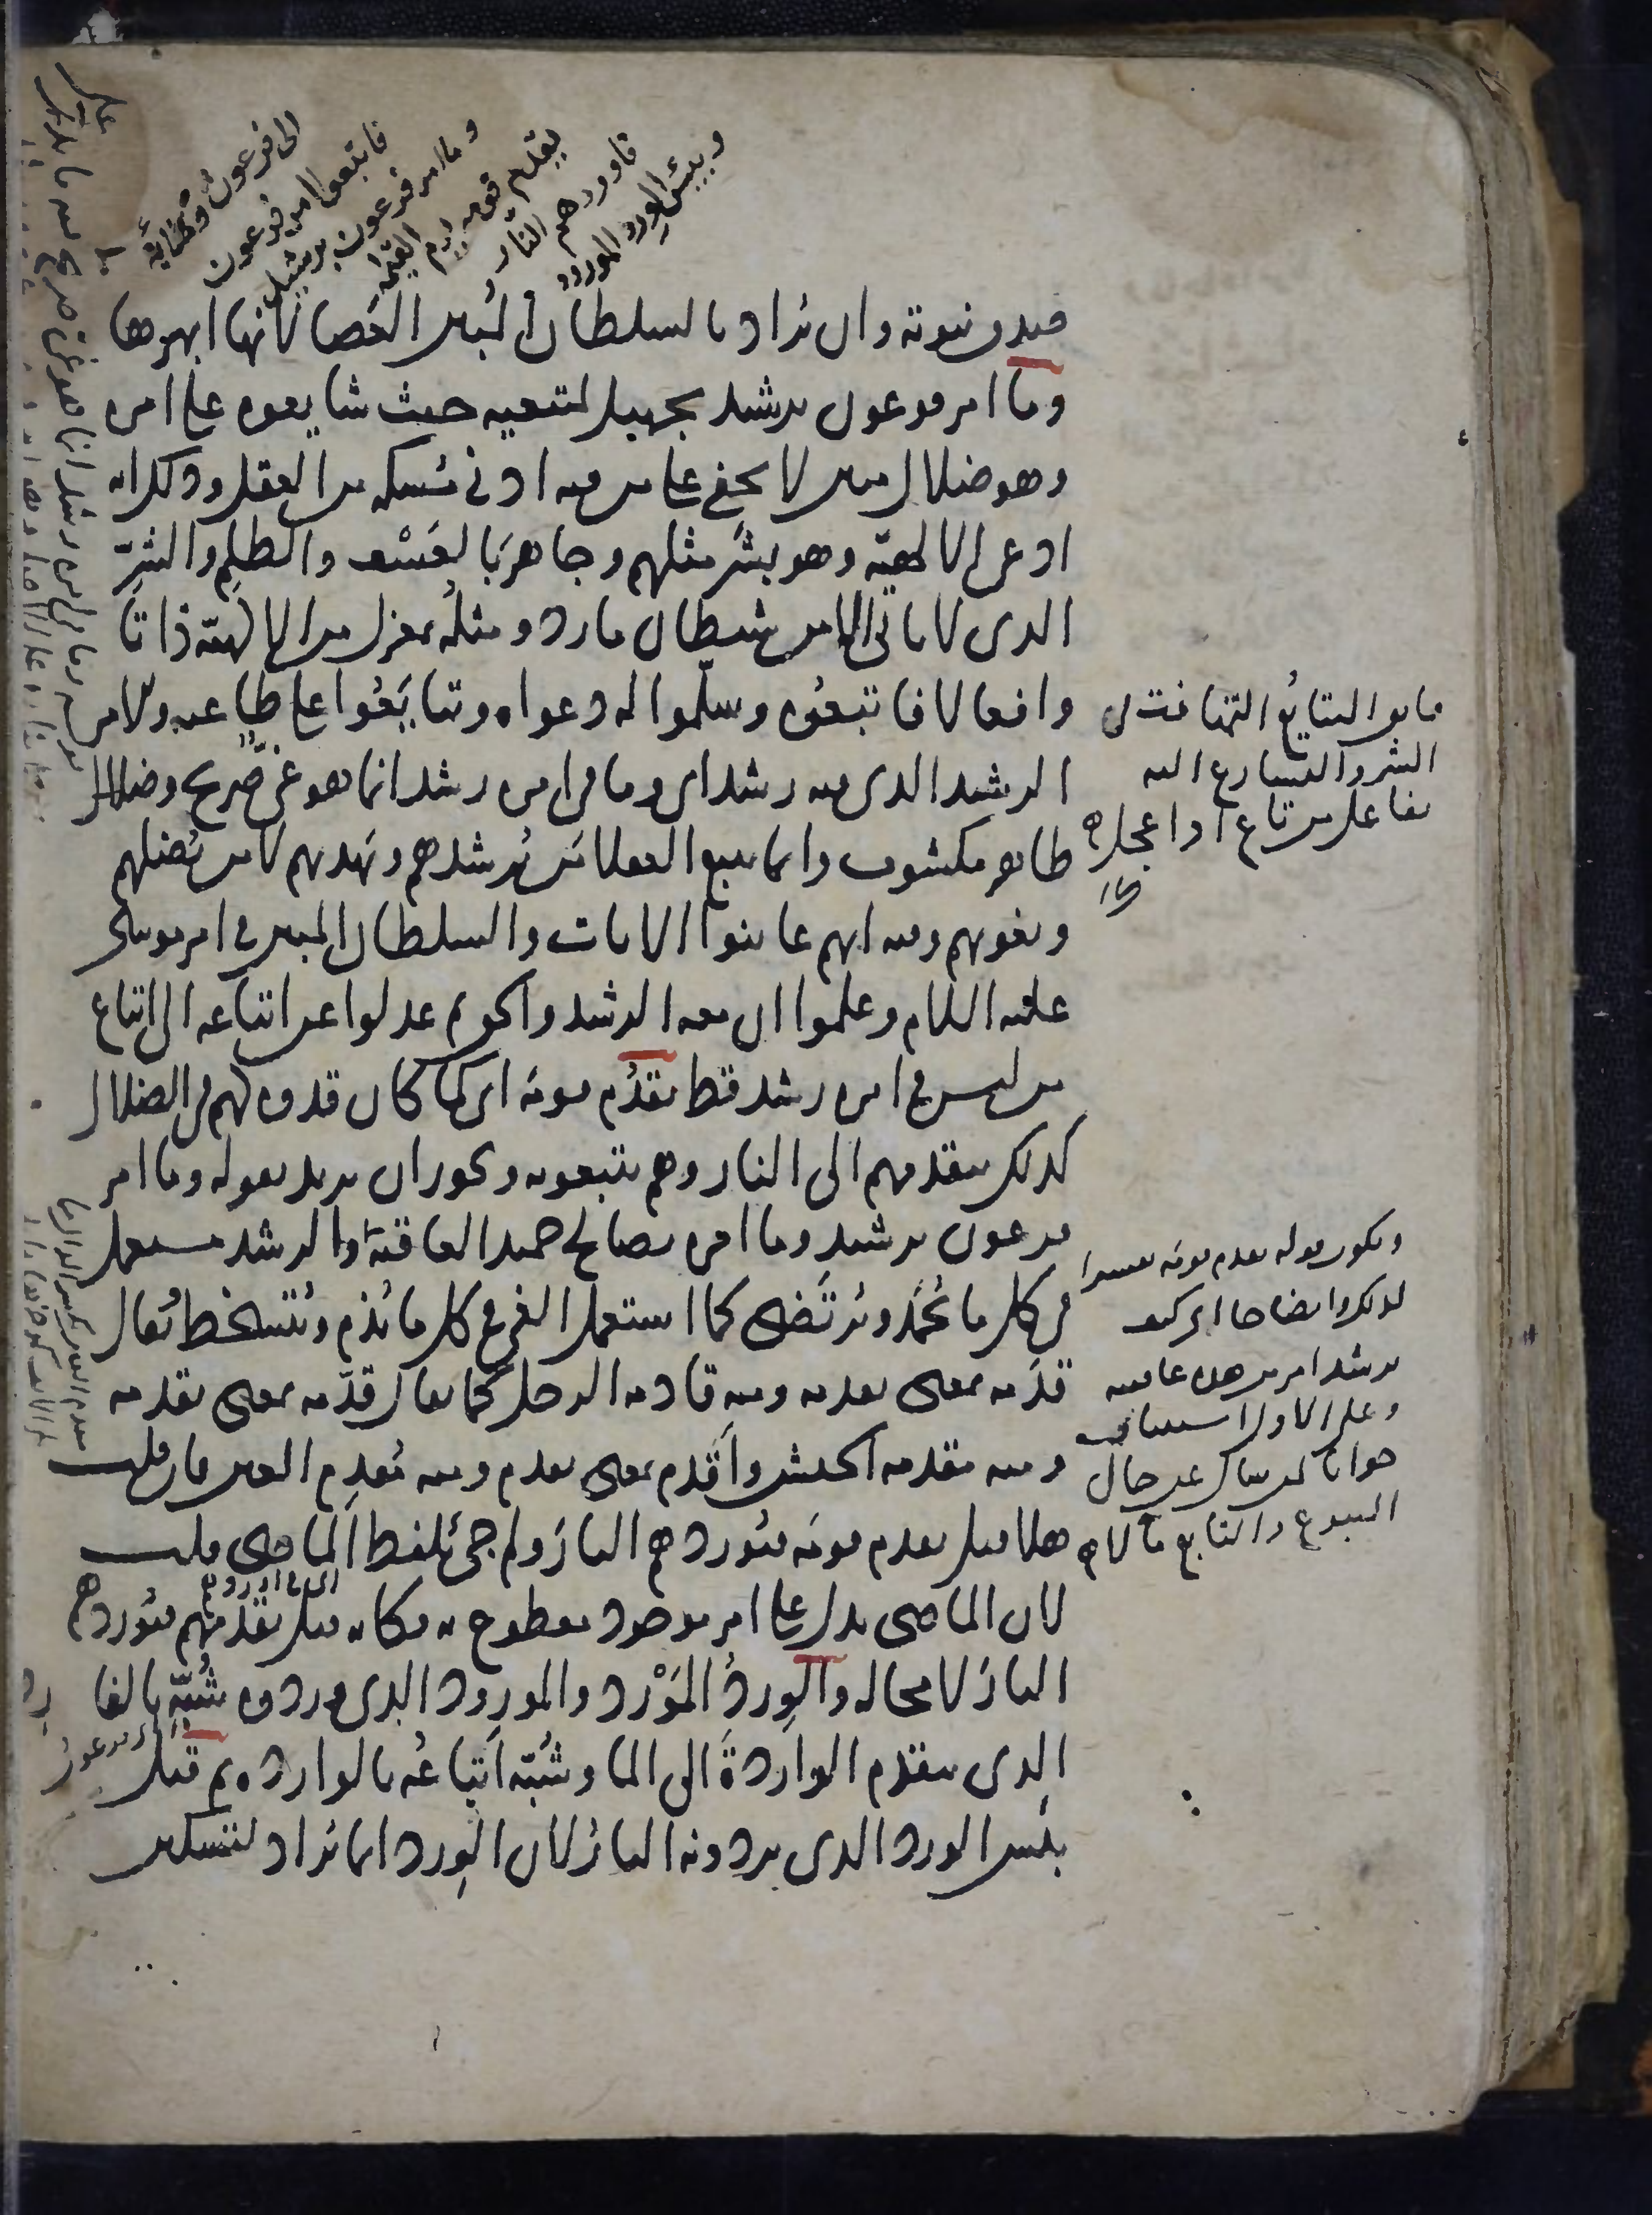 الى فرعون وملئه
فاتبعوا امر فرعون
وما امر فرعون برشيد
يقدم قومه يوم القيمة
فاوردهم النار
وبئس الورد المورود
صدق نبوته وان يراد بالسلطان المبين العصا لانها ابهرها
وما امر فرعون برشيد تجهيل لمتبعيه حيث شايعوه على امره
وهو ضلال مبين لا يخفى على من فيه ادنى مسكه من العقل وذلك انه
ادعى الالهية وهو بشر مثلهم وجاهر بالعسف والظلم والشر
الذى لا ياتى الا من شيطان مارد ومثله بمعزل من الالهية ذاتا
وافعالا فاتبعوه وسلموا له دعواه وتتايعوا على طاعته والامر
الرشيد الذى فيه رشد اى وما فى امره رشد انما هو غى صريح وضلال
ظاهر مكشوف وانما يتبع العقلا من يرشدهم ويهديهم لا من يضلهم
ويغويهم وفيه انهم عاينوا الايات والسلطان المبين فى امر موسى
عليه السلام وعلموا ان معه الرشد والحق ثم عدلوا عن اتباعه الى اتباع
من ليس فى امره رشد قط يقدم قومه اى كما كان قدوه لهم فى الضلال
كذلك يتقدمهم الى النار وهم يتبعونه ويجوز ان يريد بقوله وما امر
فرعون برشيد وما امره بصالح حميد العاقبة والرشد مستعمل
فى كل ما يحمد ويرتضى كما استعمل الغى فى كل ما يذم ويتسخط يقال
قدمه بمعنى تقدمه ومنه قادمه الرحل كما يقال قدمه بمعنى تقدمه
ومنه مقدمه الجيش واقدم بمعنى تقدم ومنه مقدم العين فان قلت
هلا قيل يقدم قومه فيوردهم النار ولم جئ بلفظ الماضى قلت
لان الماضى يدل على امر موجود مقطوع به فكانه قيل يقدمهم فيوردهم
النار لا محاله والورد المورد والمورود الذى وردوه شبه بالفا
رط
الذى يتقدم الواردة الى الما وشبه اتباعه بالوارده ثم قيل
بئس الورد الذى يردونه النار لان الورد انما يراد لتسكين
التتايع التهافت فى
الشر والتسارع اليه
تفاعل من تاع اذا عجل
ويكون قوله يقدم قومه تفسيرا
لذلك وايضاحا اى كيف
يرشد امر من هذه عاقبته
وعلى الاول استيناف
جوابا لمن سال عن حال
المتبوع والتابع